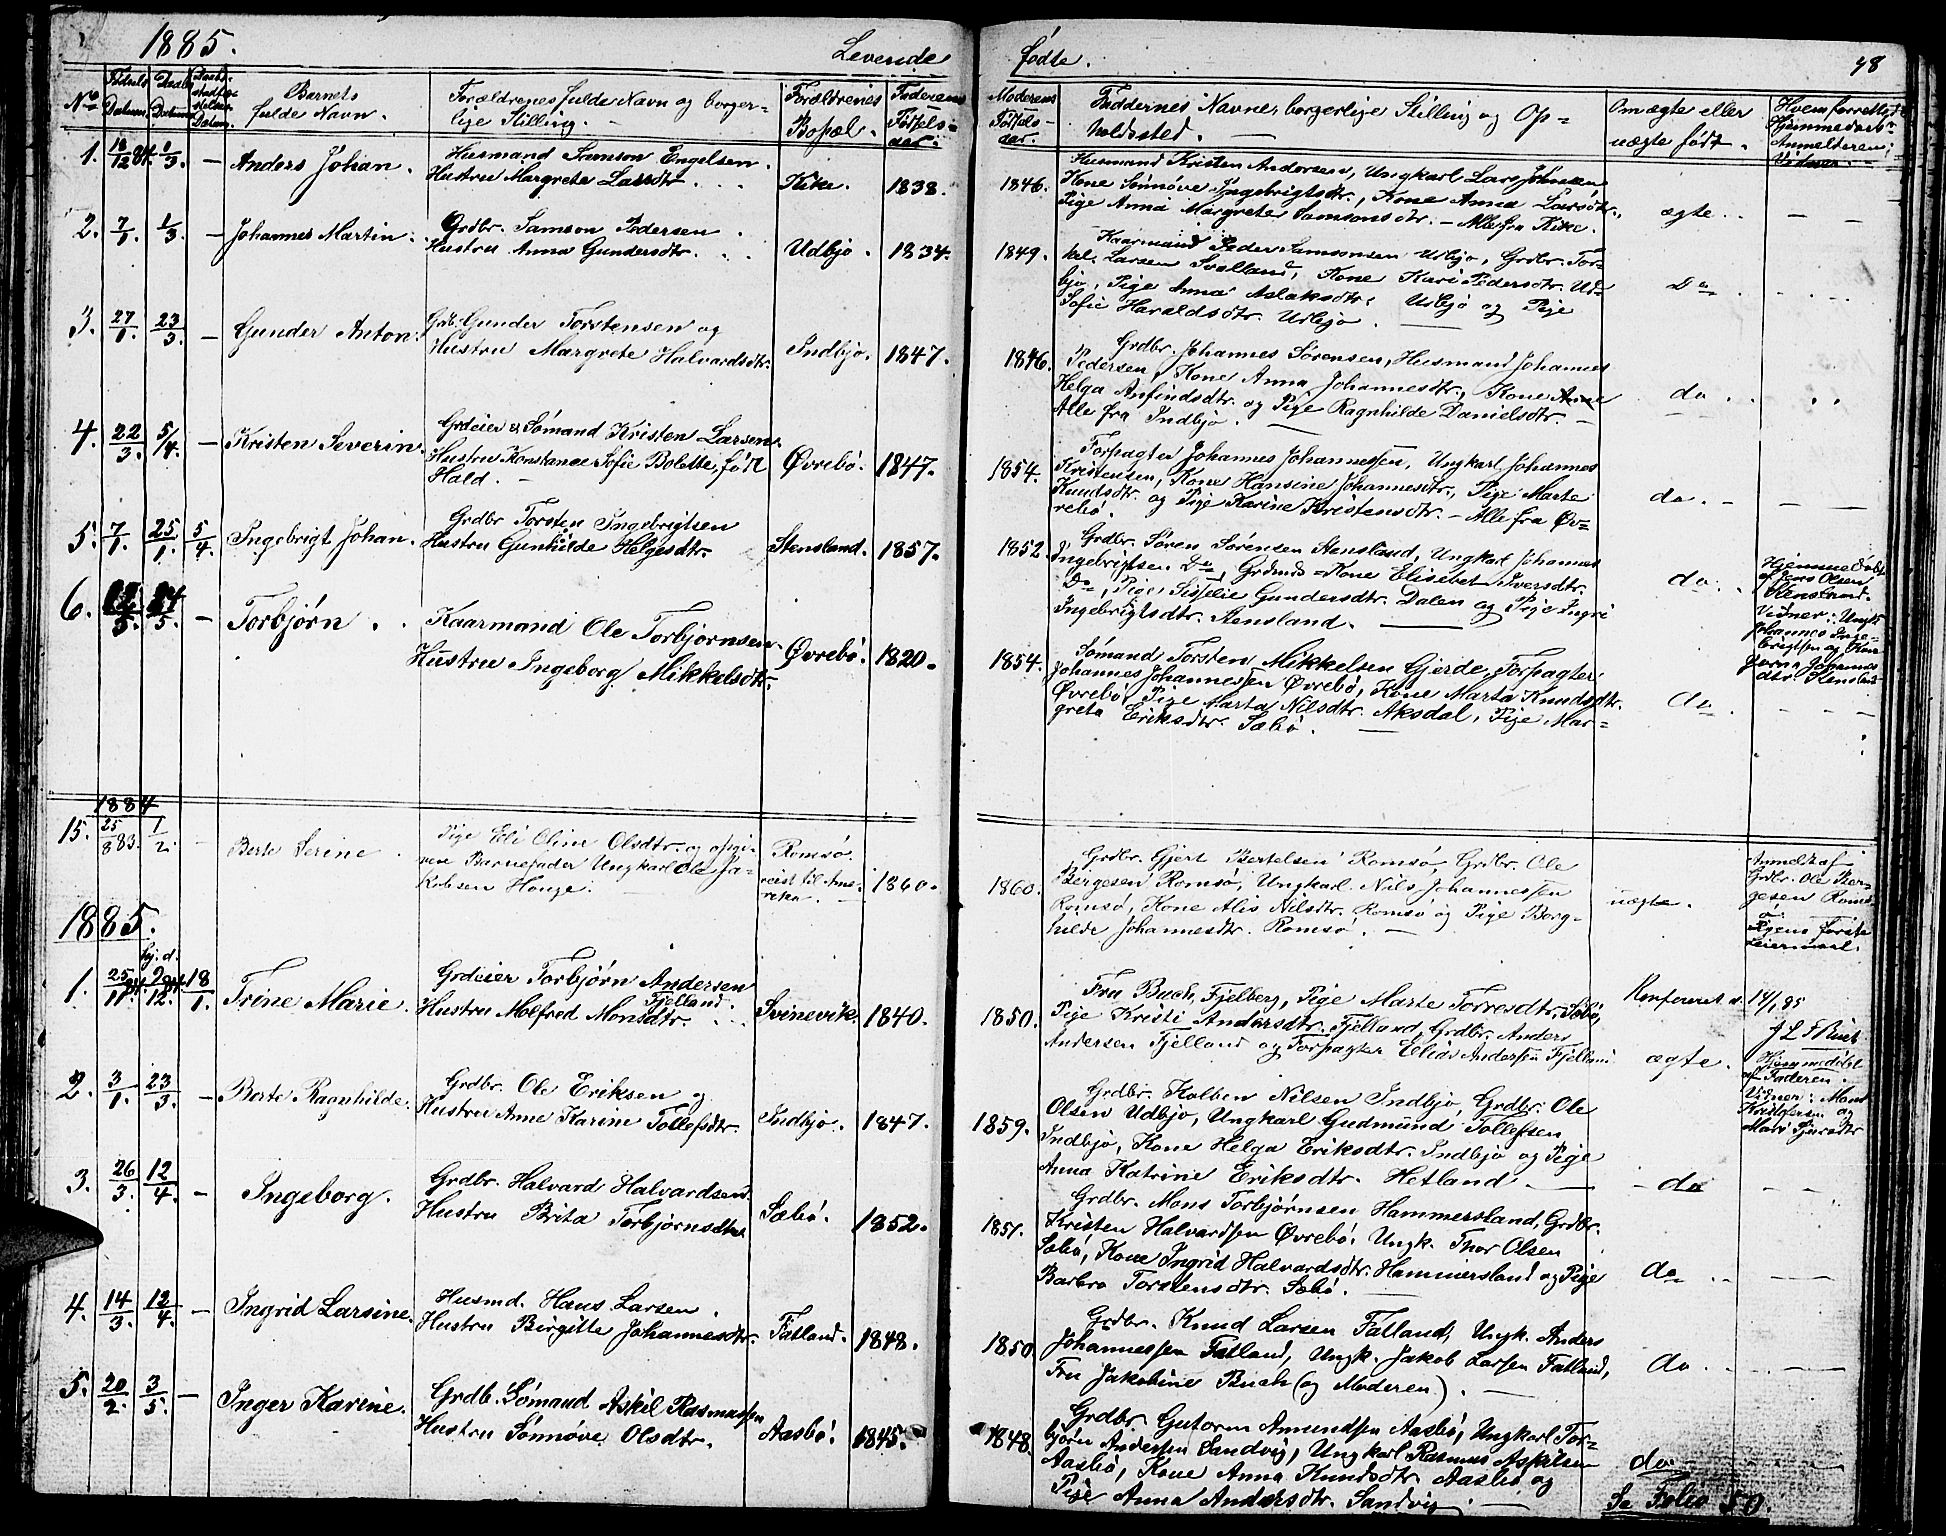 1885.
Levende
fødte.
48
No
Fødsels Datum.
Daabs Datum.
Daabs-stadfæstelsens Datum.
Barnets
fulde Navn.
Forældrenes fulde Navn og borger-
lige Stilling.
Forældrenes
Bopæl.
Faderens
Fødsels-
aar.
Moderens
Fødsels-
aar.
Faddernes Navne, borgerlige Stilling og Op=
holdssted.
Om ægte eller
uægte født.
1. 18/12 84. 1/3. — Anders Johan.
Husmand Samson Engelsen.
Hustru Margrete Larsdtr.
Kike. 1838.
1846.
Husmand Kristen Andersen, Ungkarl Lars Johnsen
Kone Sønnøve Ingebrigtsdtr., Kone Anna Larsdtr.,
Pige Anna Margrete Samsonsdtr. — Alle fra Kike.
ægte. — —
2. 7/1. 1/3. — Johannes Martin.
Grdbr. Samson Pedersen
Hustru Anna Gundersdtr.
Udbjo. 1834.
1849.
Kaarmand Peder Samsonsen Udbjo, Grdbr. Tor-
kel Larsen Svelland, Kone Kari Pedersdtr. Ud=
bjo, Pige Anna Aslaksdtr. Udbjo og Pige
Sofie Haraldsdtr. Udbjo.
Do
3. 27/1. 23/3. — Gunder Anton.
Grdb. Gunder Torstensen og
Hustru Margrete Halvardsdtr.
Indbjo. 1847.
1846.
Grdbr. Johannes Sørensen, Husmand Johannes
Pedersen, Kone Anna Johannesdtr., Kone Anne
Helga Anfindsdtr. og Pige Ragnhilde Danielsdtr. —
Alle fra Indbjo.
do.
4. 22/3. 5/4. — Kristen Severin.
Grdeier & Sømand Kristen Larsen.
Hustru Konstance Sofie Bolette, født
Hald. —
Øvrebø. 1847.
1854.
Forpagter Johannes Johannessen, Ungkarl Johannes
Kristensen, Kone Hansine Johannesdtr., Pige Marte
Knudsdtr. og Pige Karine Kristensdtr. — Alle fra Øv=
rebø.
do. —
5. 7/1. 25/1. 5/4. Ingebrigt Johan.
Grdbr Torsten Ingebrigtsen
Hustru Gunhilde Helgesdtr.
Stensland. 1857.
1852.
Grdbr. Søren Sørensen Stensland, Ungkarl Johannes
Ingebrigtsen Do, Grdmds-Kone Elisebet Iversdtr.
Do, Pige Sissele Gundersdtr. Dalen og Pige Ingri
Ingebrigtsdtr. Stensland.
do.
Hjemmedøbt
af Jens Olsen
Stensland.
Vidner: Ungk.
Johannes Inge-
brigtsen og Kone
Johannes
dtr. Stensland
6. — Torbjørn.
Kaarmand Ole Torbjørnsen
Hustru Ingeborg Mikkelsdtr.
Øvrebø. 1820.
1854.
Sømand Torsten Mikkelsen Gjerde, Forpagter
Johannes Johannessen Øvrebø, Kone Marta Knudsdtr.
Øvrebø, Pige Marta Nilsdtr. Aksdal, Pige Mar=
greta Eriksdtr. Sæbø.
do.
1884
15. 25/8 83. 1/2. Berte Serine
Pige Eli Oline Olsdtr. og opgi-
ven Barnefader Ungkarl Ole Ja-
kobsen Houge.
Romsø.
reist til Ame-
rika. —
1860.
1860.
Grdbr. Gjert Bertelsen Romsø, Grdbr. Ole
Bergesen Romsø, Ungkarl Nils Johannessen
Romsø, Kone Alis Nilsdtr. Romsø og Pige Borg-
hilde Johannesdtr. Romsø. —
uægte.
Anmeldt af
Grdbr. Ole Ber-
gesen Romsø
Pigens første
Leiermaal.
1885.
hj. d.
1. 25/11 84. 9/12. 84 18/1. Trine Marie.
Grdeier Torbjørn Andersen
Fjelland.
Hustru Molfred Monsdtr.
Svinevik. 1840.
1850.
Fru Buch, Fjelberg, Pige Marte Torresdtr. Sæbø,
Pige Kristi Andersdtr. Fjelland, Grdbr. Anders
Andersen Fjelland og Forpagter Elias Andersen Fjelland
Konfereret d. 14/1 85
ægte.
Hjemmedøbt
af Faderen.
Vidner: Mons
Kristofersen og
2. 3/1. 23/3. — Berte Ragnhilde.
Grdbr. Ole Eriksen og
Hustru Anne Karine Tollefsdtr.
Indbjo. 1847.
1859.
Grdbr. Kolben Nilsen Indbjo, Grdbr. Ole
Olsen Udbjo, Ungkarl Gudmund Tollefsen
Indbjo, Kone Helga Eriksdtr. Indbjo og Pige
Anna Katrine Eriksdtr. Hetland. —
— do — —
3. 26/3. 12/4. — Ingeborg.
Grdbr. Halvard Halvardsen
Hustru Brita Torbjørnsdtr.
Sæbø. 1852.
1857.
Grdbr. Mons Torbjørnsen Hammersland, Grdbr.
Kristen Halvardsen Øvrebø, Ungk. Thor Olsen
Sæbø, Kone Ingrid Halvardsdtr. Hammersland og Pige
Barbro Torstensdtr. Sæbø.
do.
4. 14/3. 12/4. — Ingrid Larsine.
Husmd. Hans Larsen.
Hustru Birgitte Johannesdtr.
Fatland. 1848.
1850
Grdbr. Knud Larsen Fatland, Ungk. Anders
Johannessen Fatland, Ungk. Jakob Larsen Fatland,
Fru Jakobine Buch (og Moderen). —
do.
5. 20/2. 3/5. — Inger Karine.
Grdb. Sømand Askil Rasmussen
Hustru Sønnøve Olsdtr.
Aasbø. 1845.
1848.
Grdbr. Gutorm Amundsen Aasbø, Ungkarl Tor=
bjørn Andersen Sandvig, Ungkarl Rasmus Askilsen
Aasbø, Kone Anna Knudsdtr. Aasbø, og
Pige Anna Andersdtr. Sandvig. —
do.
Se Folio 50.